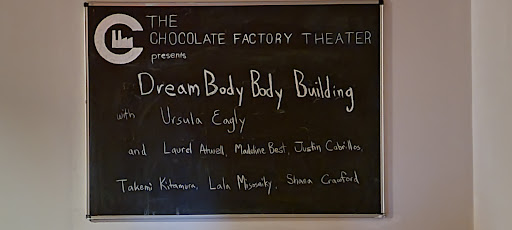 THE
CHOCOLATE FACTORY THEATER
presents
Dream Body Body Building
with Ursula Eagly
and Laurel Atwell, Madeline Best, Justin Cabrillos,
Takemi Kitamura, Lala Misosniky, Shana Crawford